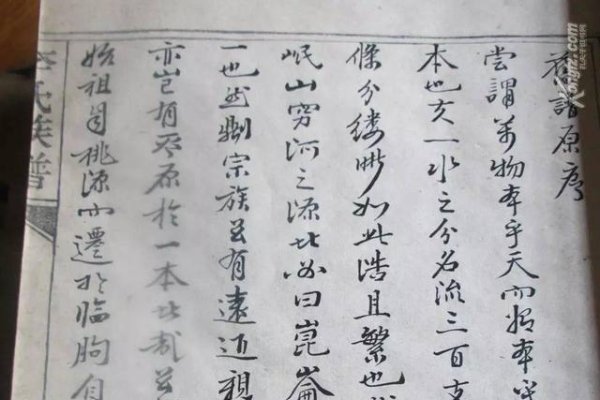 譜原序
嘗謂萬物本乎天而本乎
本也夫一水之分名流三百支
條分縷晰如此浩且繁也
岷山穷河之源必曰崑崙
一也然則宗族有遠近親
亦豈有不原於一本哉
始祖自桃源而遷於臨朐自
氏族譜
Kongfz.com